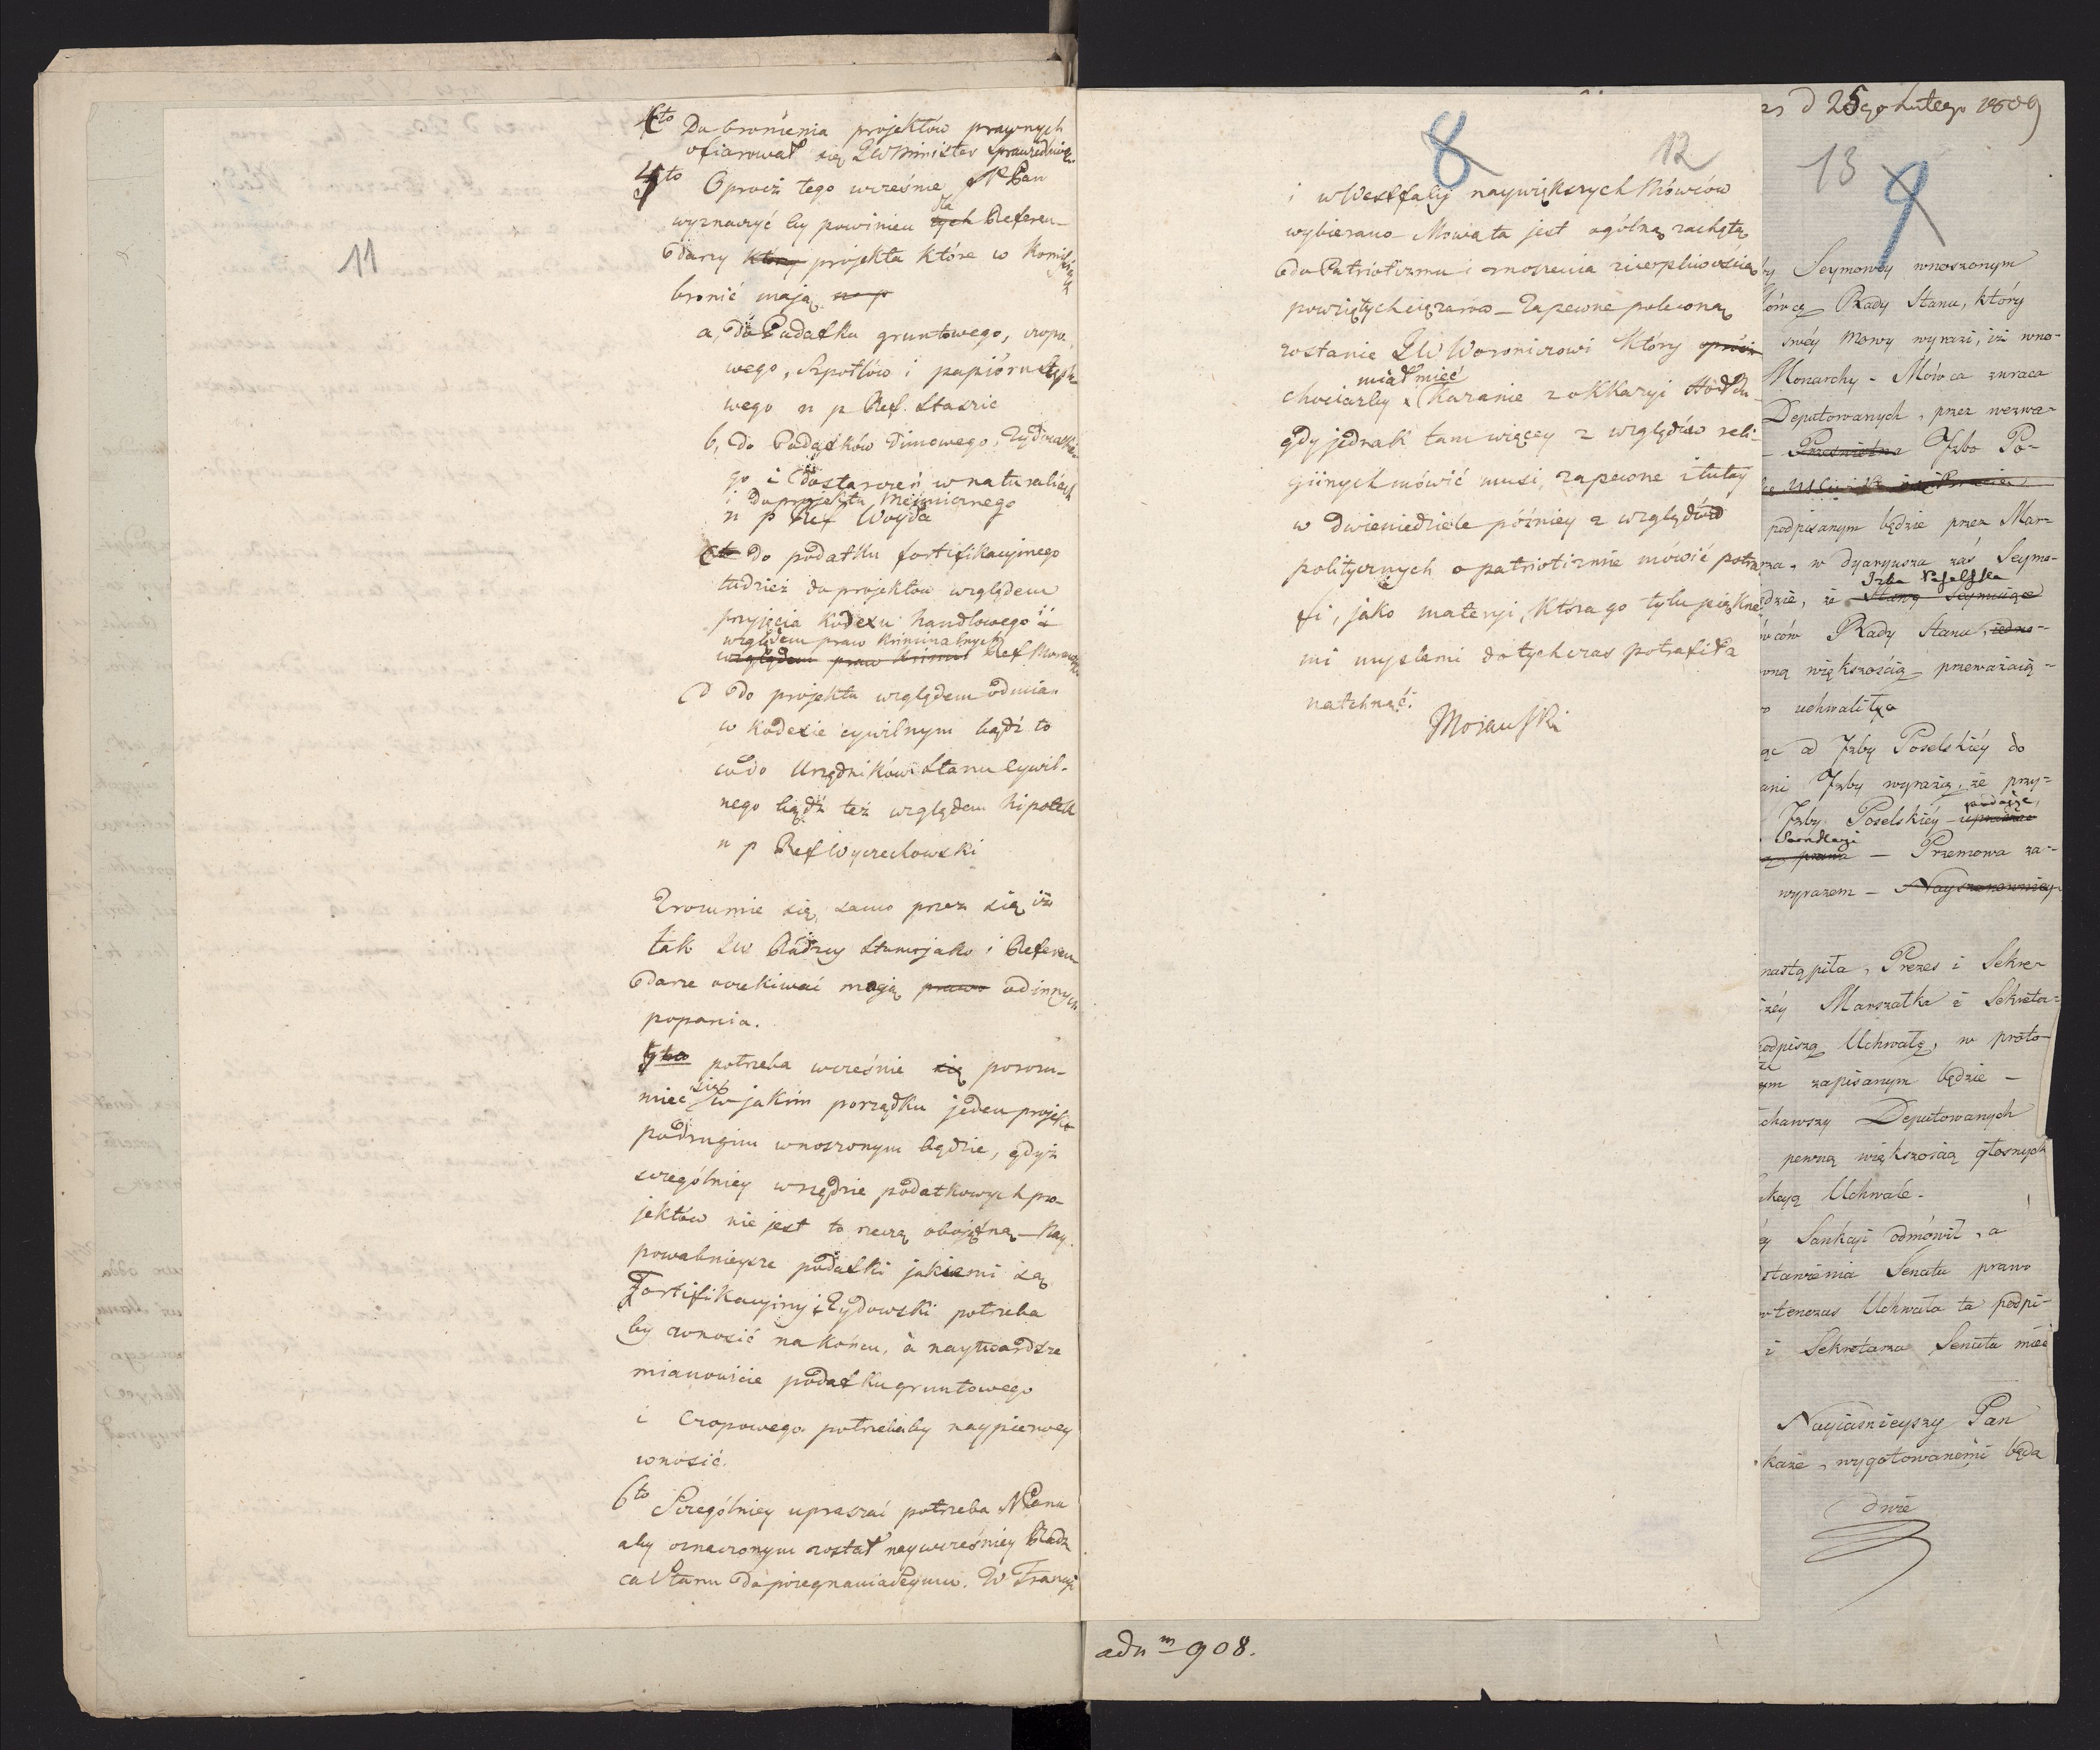 11
4to Do bronienia projektów prawnych
ofiarował się JW Minister Sprawiedliwoś.
5to Oprócz tego wcześnie N Pan
wyznaczyć by powinien dla tych Referen-
darzy który projekta które w Komissyach
bronić mają n p
a, do Podatku gruntowego, czopo.
wego, Szpotłów i papióru stęplo
wego n p Ref. Staszic
b, do Podatków dimowego, Żydowskie-
go i dostarczeń w naturaliach
i do projektu Mennicznego
n p Ref Woyda
c do podatku fortifikacyjnego
tudzież do projektów względem
przyjęcia Kodexu handlowego i
względem praw Kriminalnych
względem praw Krimin Ref Morawski
d do projektu względem odmian
w Kodexie cywilnym bądź to
co do Urzędników Stanu Cywil-
nego bądź też względem hipotek
n p Ref Wyczechowski
Zrozumie się samo przez się iż
tak JW Radzcy Stanu jako i Referen-
darze oczekiwać mają prawo od innych
popania.
potrzeba wcześnie się porozu-
mieć się w jakim porządku jeden projekt
po drugim wnoszonym będzie, gdyż
szczególniey w rzędzie podatkowych pro-
jektów nie jest to rzeczą obojętną — Nay-
powabnieysze podatki jakiemi są
Fortifikacyiny i Żydowski potrzeba
by wnosić na końcu, à naytwardsze
mianowicie podatku gruntowego
i Czopowego potrzebaby naypierwey
wnosić.
6to Szczególniey upraszać potrzeba N Pana
aby oznaczonym został naywcześniey Radz
ca Stanu do pożegnania Seymu. W Francyi
8 12
i w Westfaly naywiększych Mówców
wybierano Mowa ta jest ogólną zachętą
do Patriotizmu i znoszenia z cierpliwością
powziętych ciężarów — Zapewne poleconą
zostanie JW Woroniczowi który oprócz
chociażby miał mieć Kazanie z okkazyi Hołdu
gdy jednak tam więcey z względów reli-
giinych mówić musi, zapewne i tutay
w dwie niedziele późniey z względów
politycznych o patriotizmie mówić potra
fi, jako materyi, która go tylu piękne
mi myslemi dotychczas potrafiła
natchnąć.
Morawski
adn m 908.
rs d 25go Lutego 1809
13 9
by Seymowey wnoszonym
ówcę Rady Stanu, który
swéy Mowy wyrazi, iż wno-
Monarchy - Mówca zwraca
Deputowanych, przez wezwa-
- Prześwietna Izbo Po-
podpisanym będzie przez Mar-
rza, w dyaryuszu zaś Seymo-
Izba Poselska
dzie, że Stany Seymuiące
wców Rady Stanu, iedno-
wną większością przeważaią-
o uchwaliła
ąc a Izby Poselskiéy do
ani Izby wyrażą, że przy-
podaje,
Izby Poselskiéy
Sankcyi
prawa — Przemowa za-
wyrazem — Nayszanowniey
nastąpiła, Prezes i Sekre-
zéy Marszałka i Sekreta-
odpiszą Uchwałę, w proto-
ym zapisanym będzie —
chawszy Deputowanych
pewną większością głosnych
kcyą Uchwale.
éy Sankcji odmówił, a
stawienia Senatu prawo
wtenczas Uchwała ta podpi-
i Sekretarza Senatu mieć
Nayiaśnieyszy Pan
każe, wygotowanemi będą
dwie